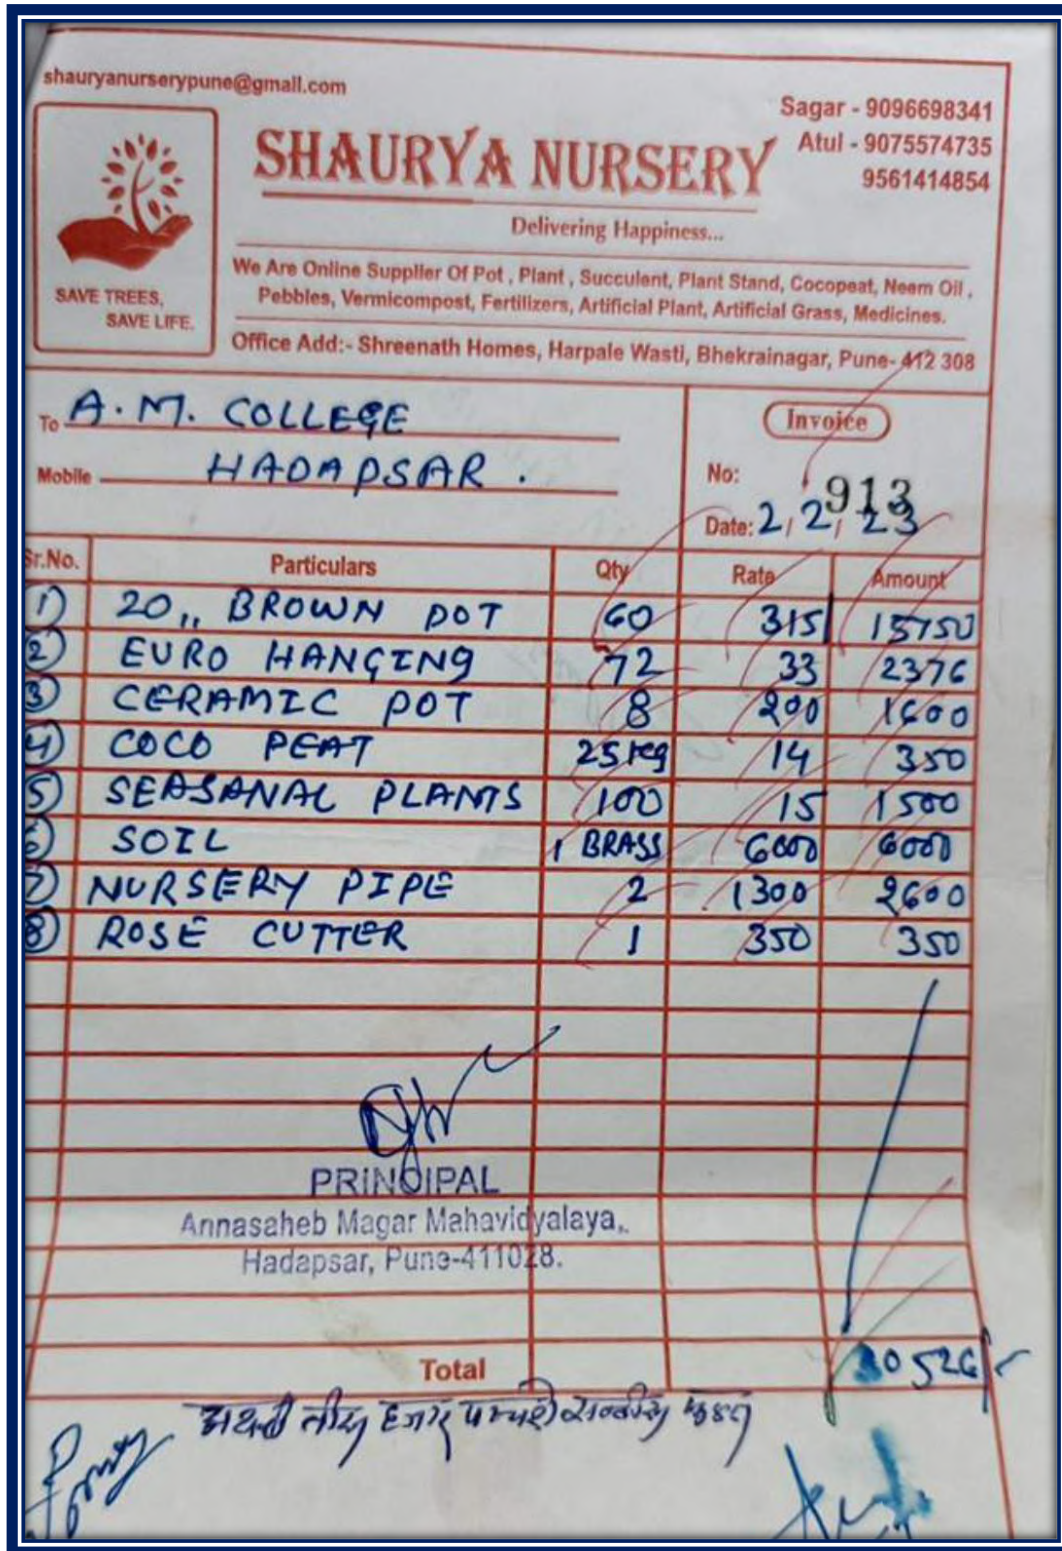 shauryanurserypune@gmail.com
Sagar - 9096698341
Atul - 9075574735
9561414854
SHAURYA NURSERY
Delivering Happiness...
SAVE TREES,
SAVE LIFE.
We Are Online Supplier Of Pot , Plant , Succulent, Plant Stand, Cocopeat, Neem Oil ,
Pebbles, Vermicompost, Fertilizers, Artificial Plant, Artificial Grass, Medicines.
Office Add:- Shreenath Homes, Harpale Wasti, Bhekrainagar, Pune- 412 308
To A.M. COLLEGE
Mobile HADAPSAR.
Invoice
No: 913
Date: 2/2/23
Sr.No. Particulars Qty Rate Amount
1) 20,, BROWN POT 60 315 15750
2) EURO HANGING 72 33 2376
3) CERAMIC POT 8 200 1600
4) COCO PEAT 25 kg 14 350
5) SEASANAL PLANTS 100 15 1500
6) SOIL 1 BRASS 6000 6000
7) NURSERY PIPE 2 1300 2600
8) ROSE CUTTER 1 350 350
PRINCIPAL
Annasaheb Magar Mahavidyalaya,
Hadapsar, Pune-411028.
Total 30526/-